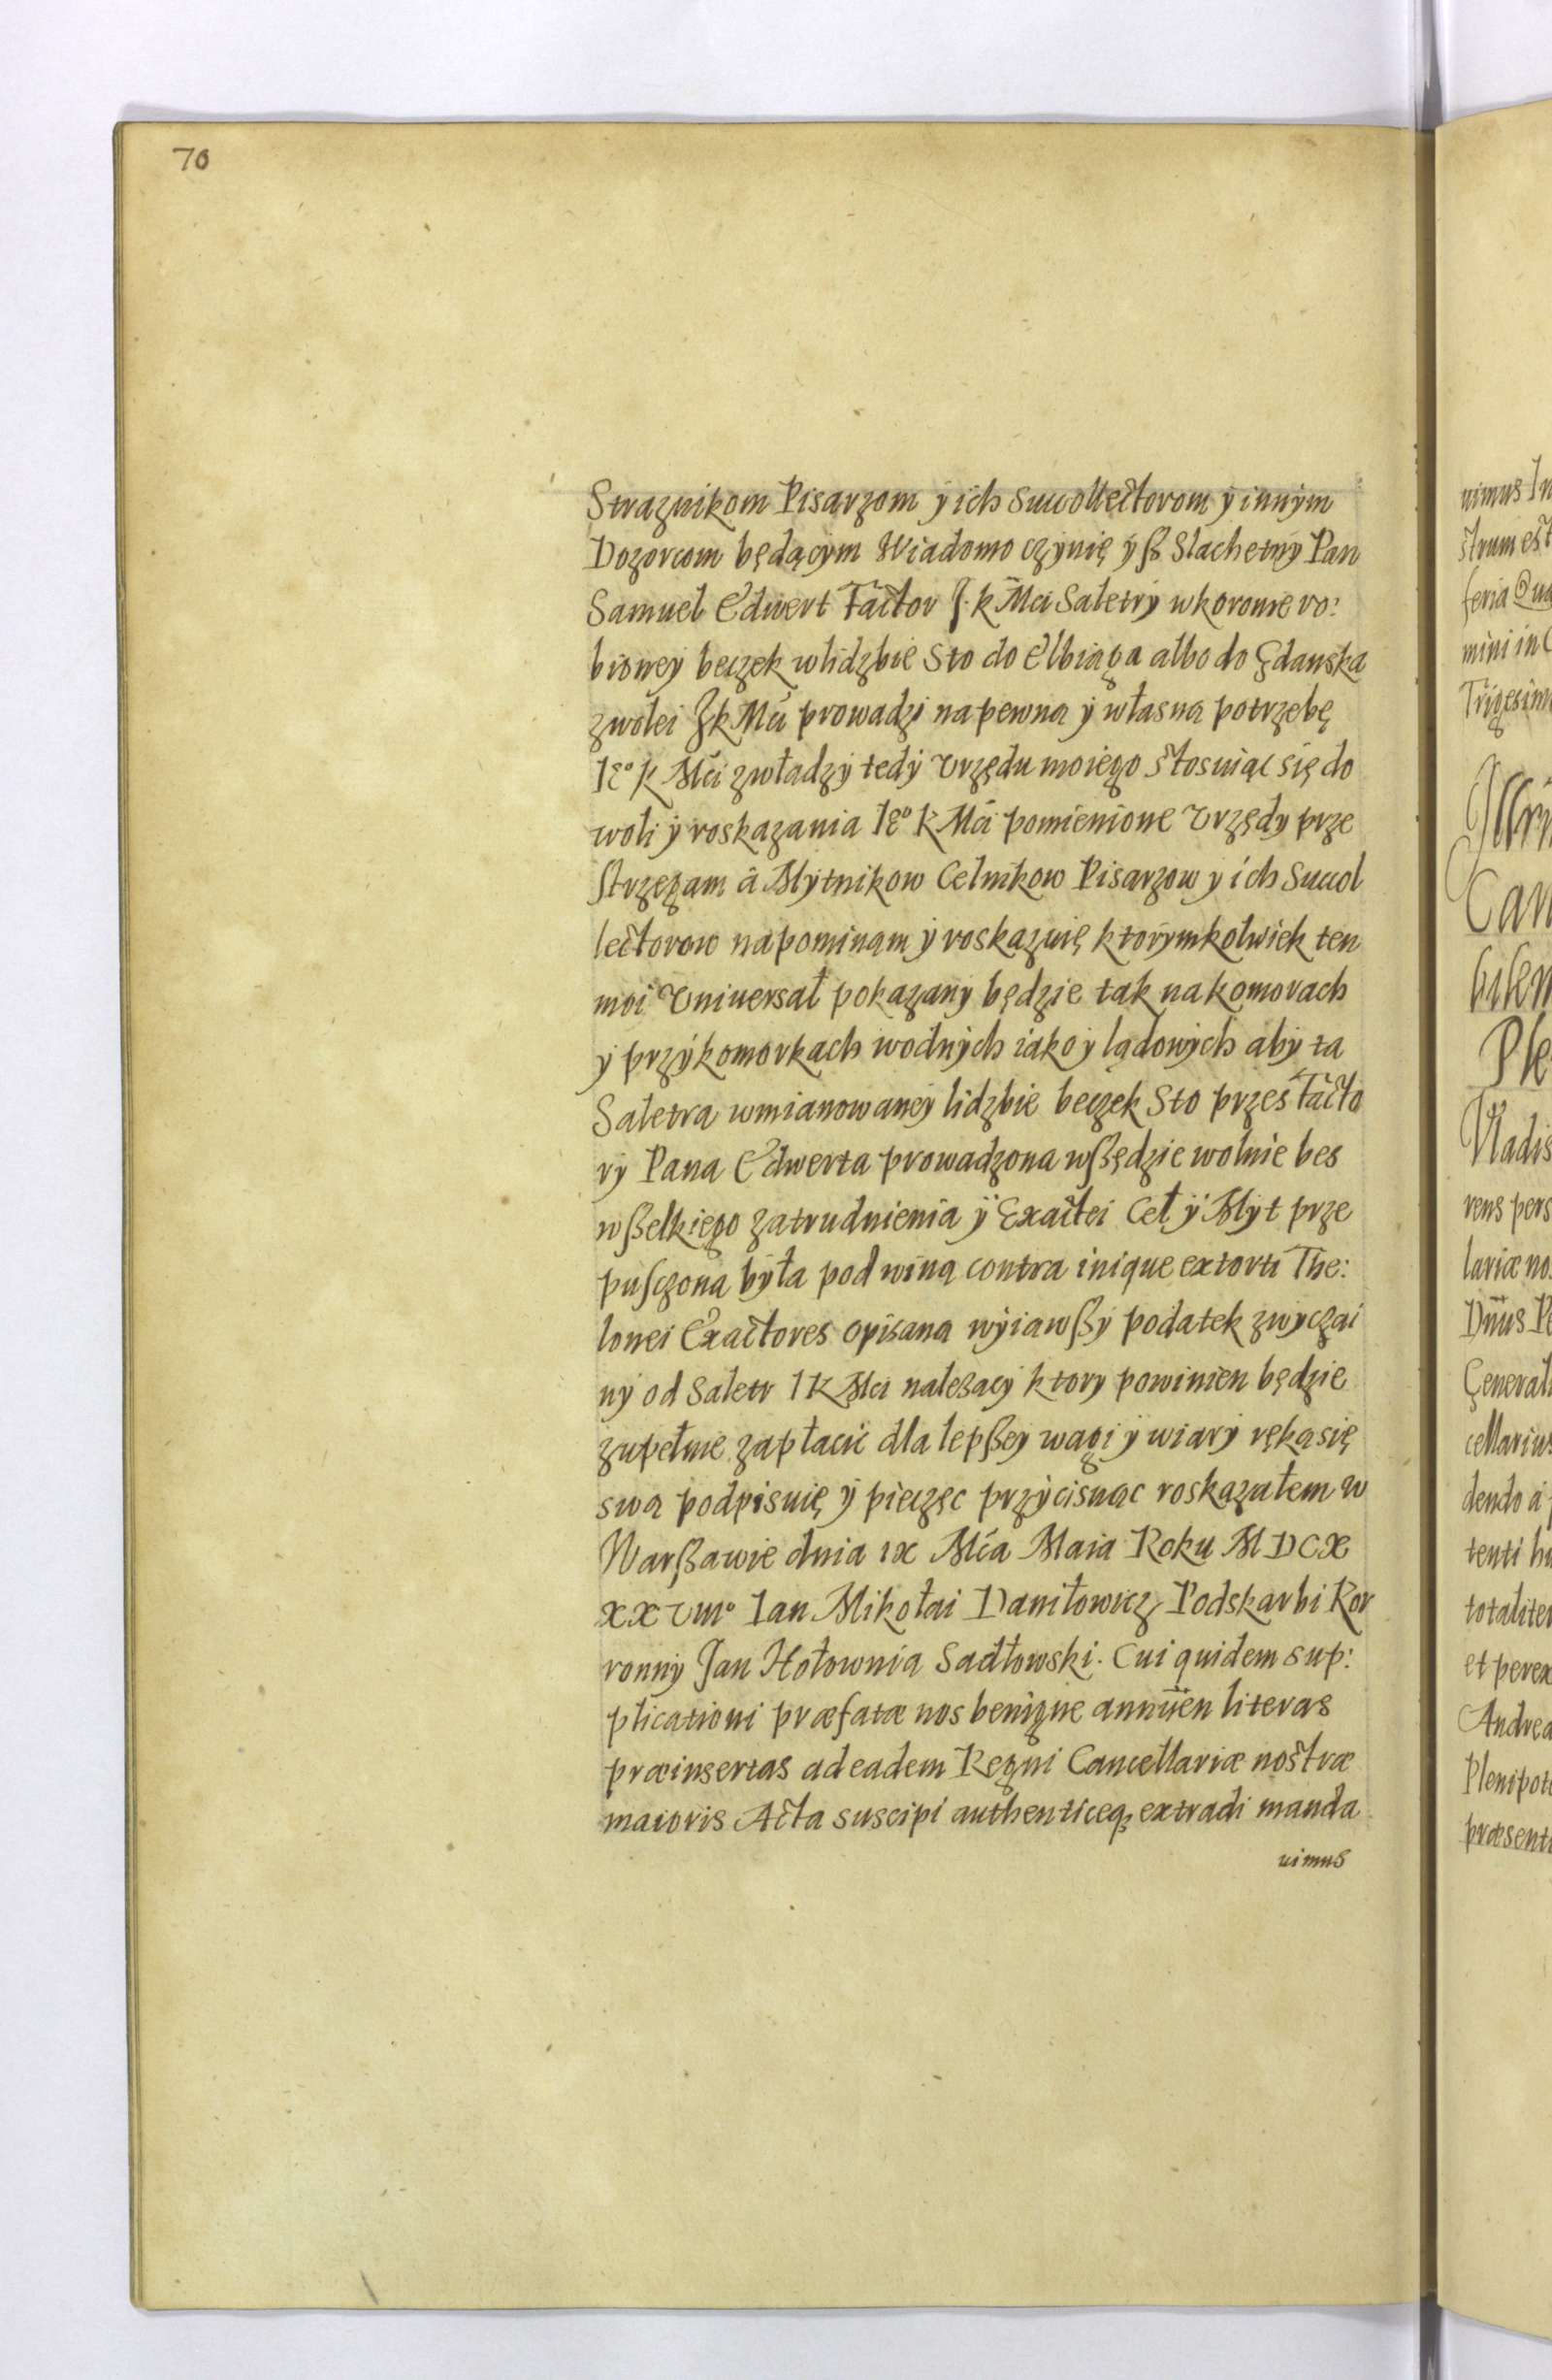 70
Straznikom Pisarzom ÿ ich Succollectorom ÿ innÿm
Dozorcom będącÿm Wiadomo czÿnię ÿß Slachetnÿ Pan
Samuel Edwert Factor J. k Mci Saletrÿ w koronie ro:
bioneÿ beczek wlidzbie Sto do Elbiąga albo do Gdanska
zwolei Jk Mci prowadzi na pewną ÿ własną potrzebę
Ie° k Mci zwładzÿ tedÿ Vrzędu moiego stosuiąc się do
woli ÿ roskazania Ie° k Mci pomienione Vrzędÿ prze
strzegam á Mÿtnikow Celnikow Pisarzow ÿ ich Succol
lectorow napominam ÿ roskazuię ktorÿmkolwiek ten
moi Vniuersał pokazanÿ będzie tak na komorach
ÿ przÿkomorkach wodnÿch iako ÿ lądowÿch abÿ ta
Saletra wmianowaneÿ lidzbie beczek Sto przes Facto
rÿ Pana Edwerta prowadzona wßędzie wolnie bes
wßelkiego zatrudnienia ÿ Exactei Ceł ÿ Mÿt prze
pusczona bÿła pod winą contra inique extorti The:
lonei Exactores opisaną wÿiawßÿ podatek zwÿczai
nÿ od Saletr I K Mci naleząci ktorÿ powinien będzie
zupełnie zapłacić dla lepßeÿ wagi ÿ wiarÿ ręką się
swą podpisuię ÿ pieczęc przÿcisnąc roskazałem w
Warßawie dnia ix Mca Maia Roku M DCX
XX VIII° Ian Mikołai Daniłowicz Podskarbi Kor
ronnÿ Jan Hołownia Sadłowski. Cui quidem sup:
plicationi præfatæ nos benigne annuen literas
præinsertas ad eadem Regni Cancellariæ nostræ
maioris Acta suscipi authenticeq; extradi manda
uimus
nimus In
strum est
feria Qua
mini in C
Trigesim
Can
bilem
Ple
Vladis
rens pers
lariæ no
Dnus Pe
General
cellarius
dendo a p
tenti hu
totaliter
et perex
Andrea
Plenipote
præsenti